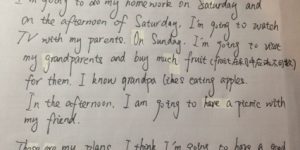 I'm going to do my homework on Saturday and
on the afternoon of Saturday. I'm going to watch
TV with my parents. On Sunday. I'm going to visit
my grandparents and buy much fruit
for them. I know grandpa likes eating apples.
In the afternoon, I am going to have a picnic with
my friend.
These are my plans. I think I'm going to have a good